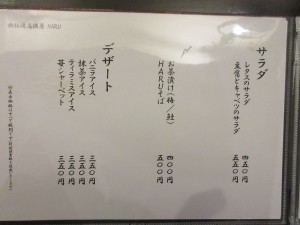 サラダ
レタスのサラダ 四五〇円
豆腐とキャベツのサラダ 五五〇円
お茶漬け(梅/鮭) 四〇〇円
HARUそば 五〇〇円
デザート
バニラアイス 三五〇円
抹茶アイス 三五〇円
ティラミスアイス 三五〇円
苺シャーベット 三五〇円